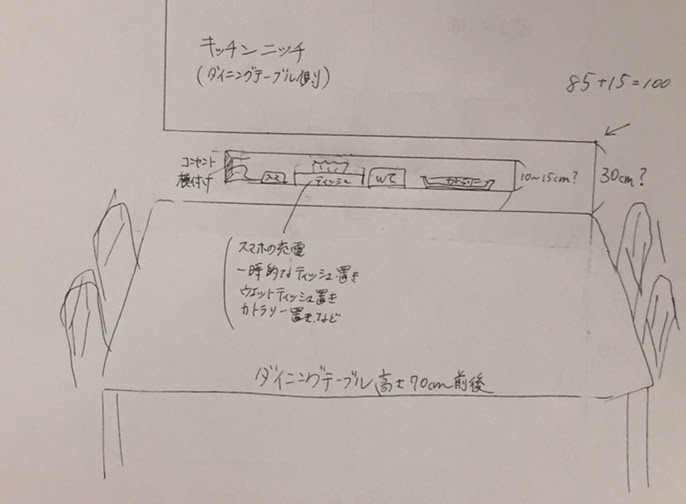 キッチンニッチ
(ダイニングテーブル側)
85+15=100
コンセント
横付け
スマホ
ティッシュ
WT
カトラリー
10~15cm?
30cm?
スマホの充電
一時的なティッシュ置き
ウェットティッシュ置き
カトラリー置き、など
ダイニングテーブル高さ70cm前後